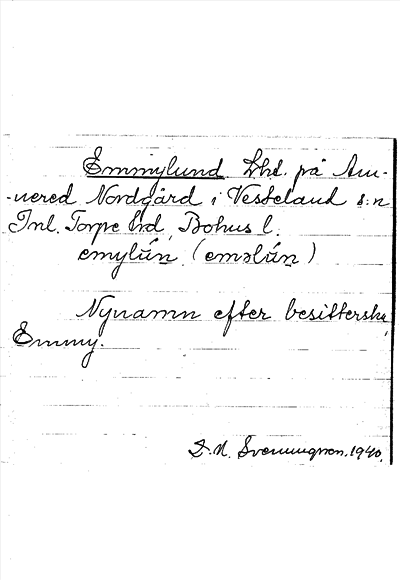 Emmylund. Lht. på Am-
-nered Nordgård i Vesteland s:n
Inl. Torpe hrd, Bohus l.
emylún (eməlún)
Nynamn efter besitterska
Emmy.
D. N. Svenungsson. 1940.